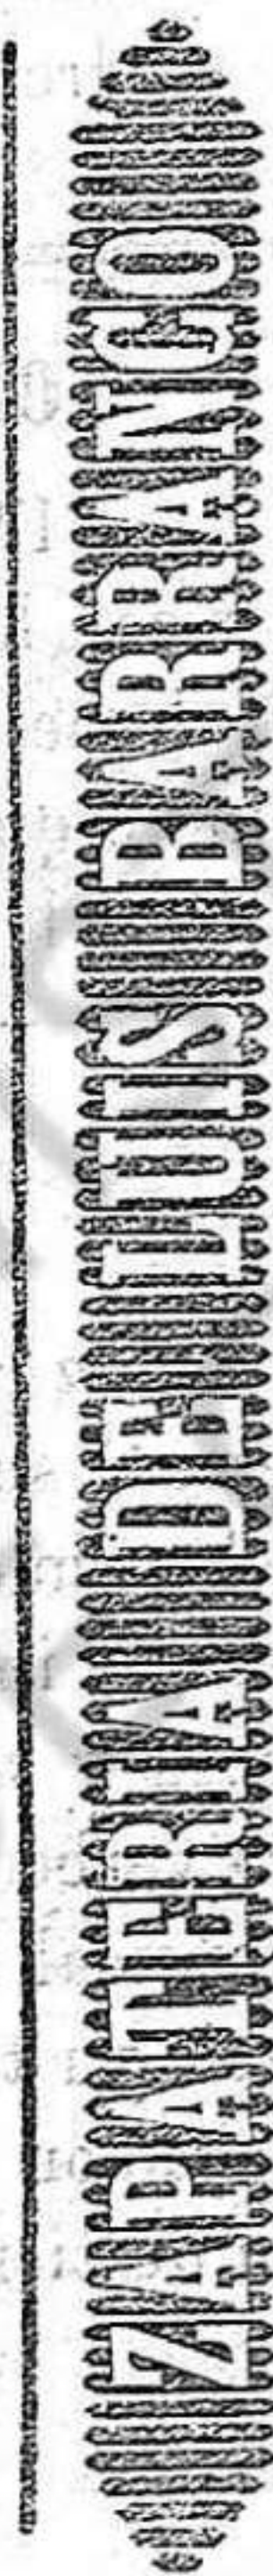 ZAPATERIA DE LUIS BARRANCO